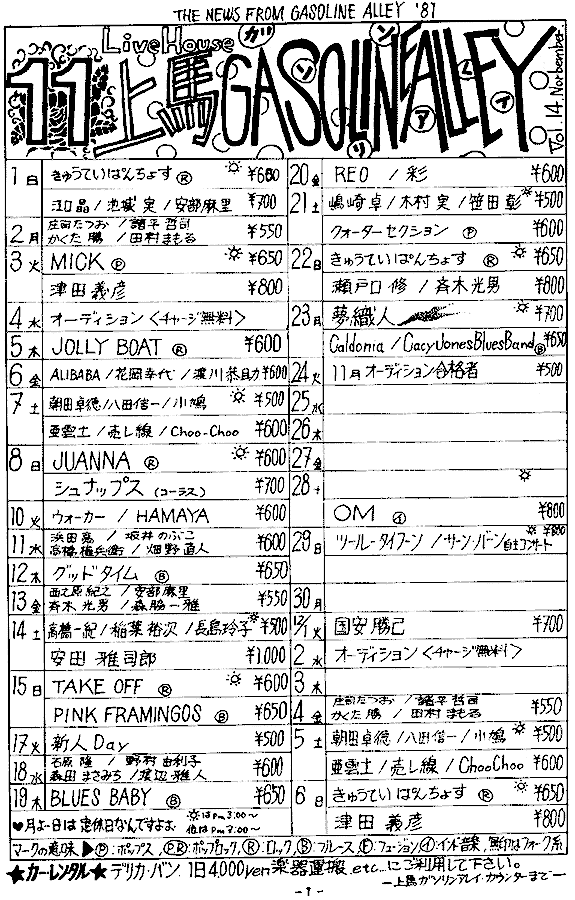 THE NEWS FROM GASOLINE ALLEY '81
Live House
11 上馬 GASOLINE ALLEY
ガソリンアレイ
Vol.14 November
1日 きゅうていぱんちょす Ⓡ ¥600
江口晶/池城実/安部麻里 ¥700
2月 庄司たつお/諸平哲司
かくた勝/田村まもる ¥550
3火 MICK Ⓟ ¥650
津田義彦 ¥800
4水 オーディション<チャージ無料>
5木 JOLLY BOAT Ⓡ ¥600
6金 ALIBABA/花岡幸代/渡川恭助 ¥600
7土 朝田卓徳/八田信一/小鳩 ¥500
亜雲土/売し線/Choo-Choo ¥600
8日 JUANNA Ⓡ ¥600
シュナップス(コーラス) ¥700
10火 ウォーカー/HAMAYA ¥600
11水 浜田亮/坂井のぶこ
高橋権兵衛/畑野直人 ¥600
12木 グッドタイム Ⓑ ¥650
13金 西之原紀之/安部麻里
斉木光男/森脇一雅 ¥550
14土 高橋一紀/稲葉裕次/長島玲子 ¥500
安田雅司郎 ¥1,000
15日 TAKE OFF Ⓡ ¥600
PINK FRAMINGOS Ⓑ ¥650
17火 新人Day ¥500
18水 石原隆/野村由利子
森田まさみち/渡辺雅人 ¥600
19木 BLUES BABY Ⓑ ¥650
♥月よー日は定休日なんですよぉ
☼はPm3:00〜
他はPm7:00〜
20金 REO/彩 ¥600
21土 嶋崎卓/木村実/笹田彰 ¥500
クォーターセクション Ⓟ ¥600
22日 きゅうていぱんちょす Ⓡ ¥650
瀬戸口修/斉木光男 ¥800
23月 夢織人 ¥700
Caldonia/CacyJonesBluesBand Ⓑ ¥650
24火 11月オーディション合格者 ¥500
25水
26木
27金
28土
OM Ⓘ ¥800
29日 ツール-タイフーン/サーン・バーン 自主コンサート ¥800
30月
12/1火 国安勝己 ¥700
2水 オーディション<チャージ無料>
3木
4金 庄司たつお/諸平哲司
かくた勝/田村まもる ¥550
5土 朝田卓徳/八田信一/小鳩 ¥500
亜雲土/売し線/ChooChoo ¥600
6日 きゅうていぱんちょす Ⓡ ¥650
津田義彦 ¥800
マークの意味▶Ⓟ:ポップス、PR:ポップロック、Ⓡ:ロック、Ⓑ:ブルース、Ⓕ:フュージョン、イ:インド音楽、無印はフォーク系
★カーレンタル★デリカ・バン 1日4,000yen 楽器運搬.etc...にご利用して下さい。
―上馬ガソリンアレイ・カウンターまで―
-1-